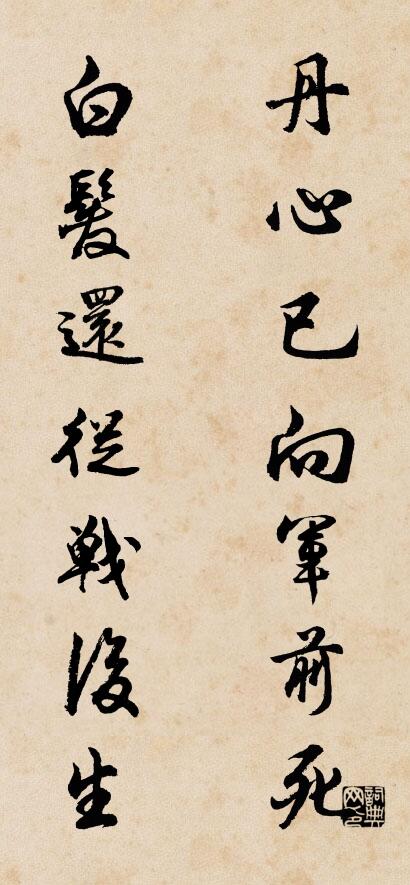 丹心已向軍前死
白髮還從戰後生
詞典网